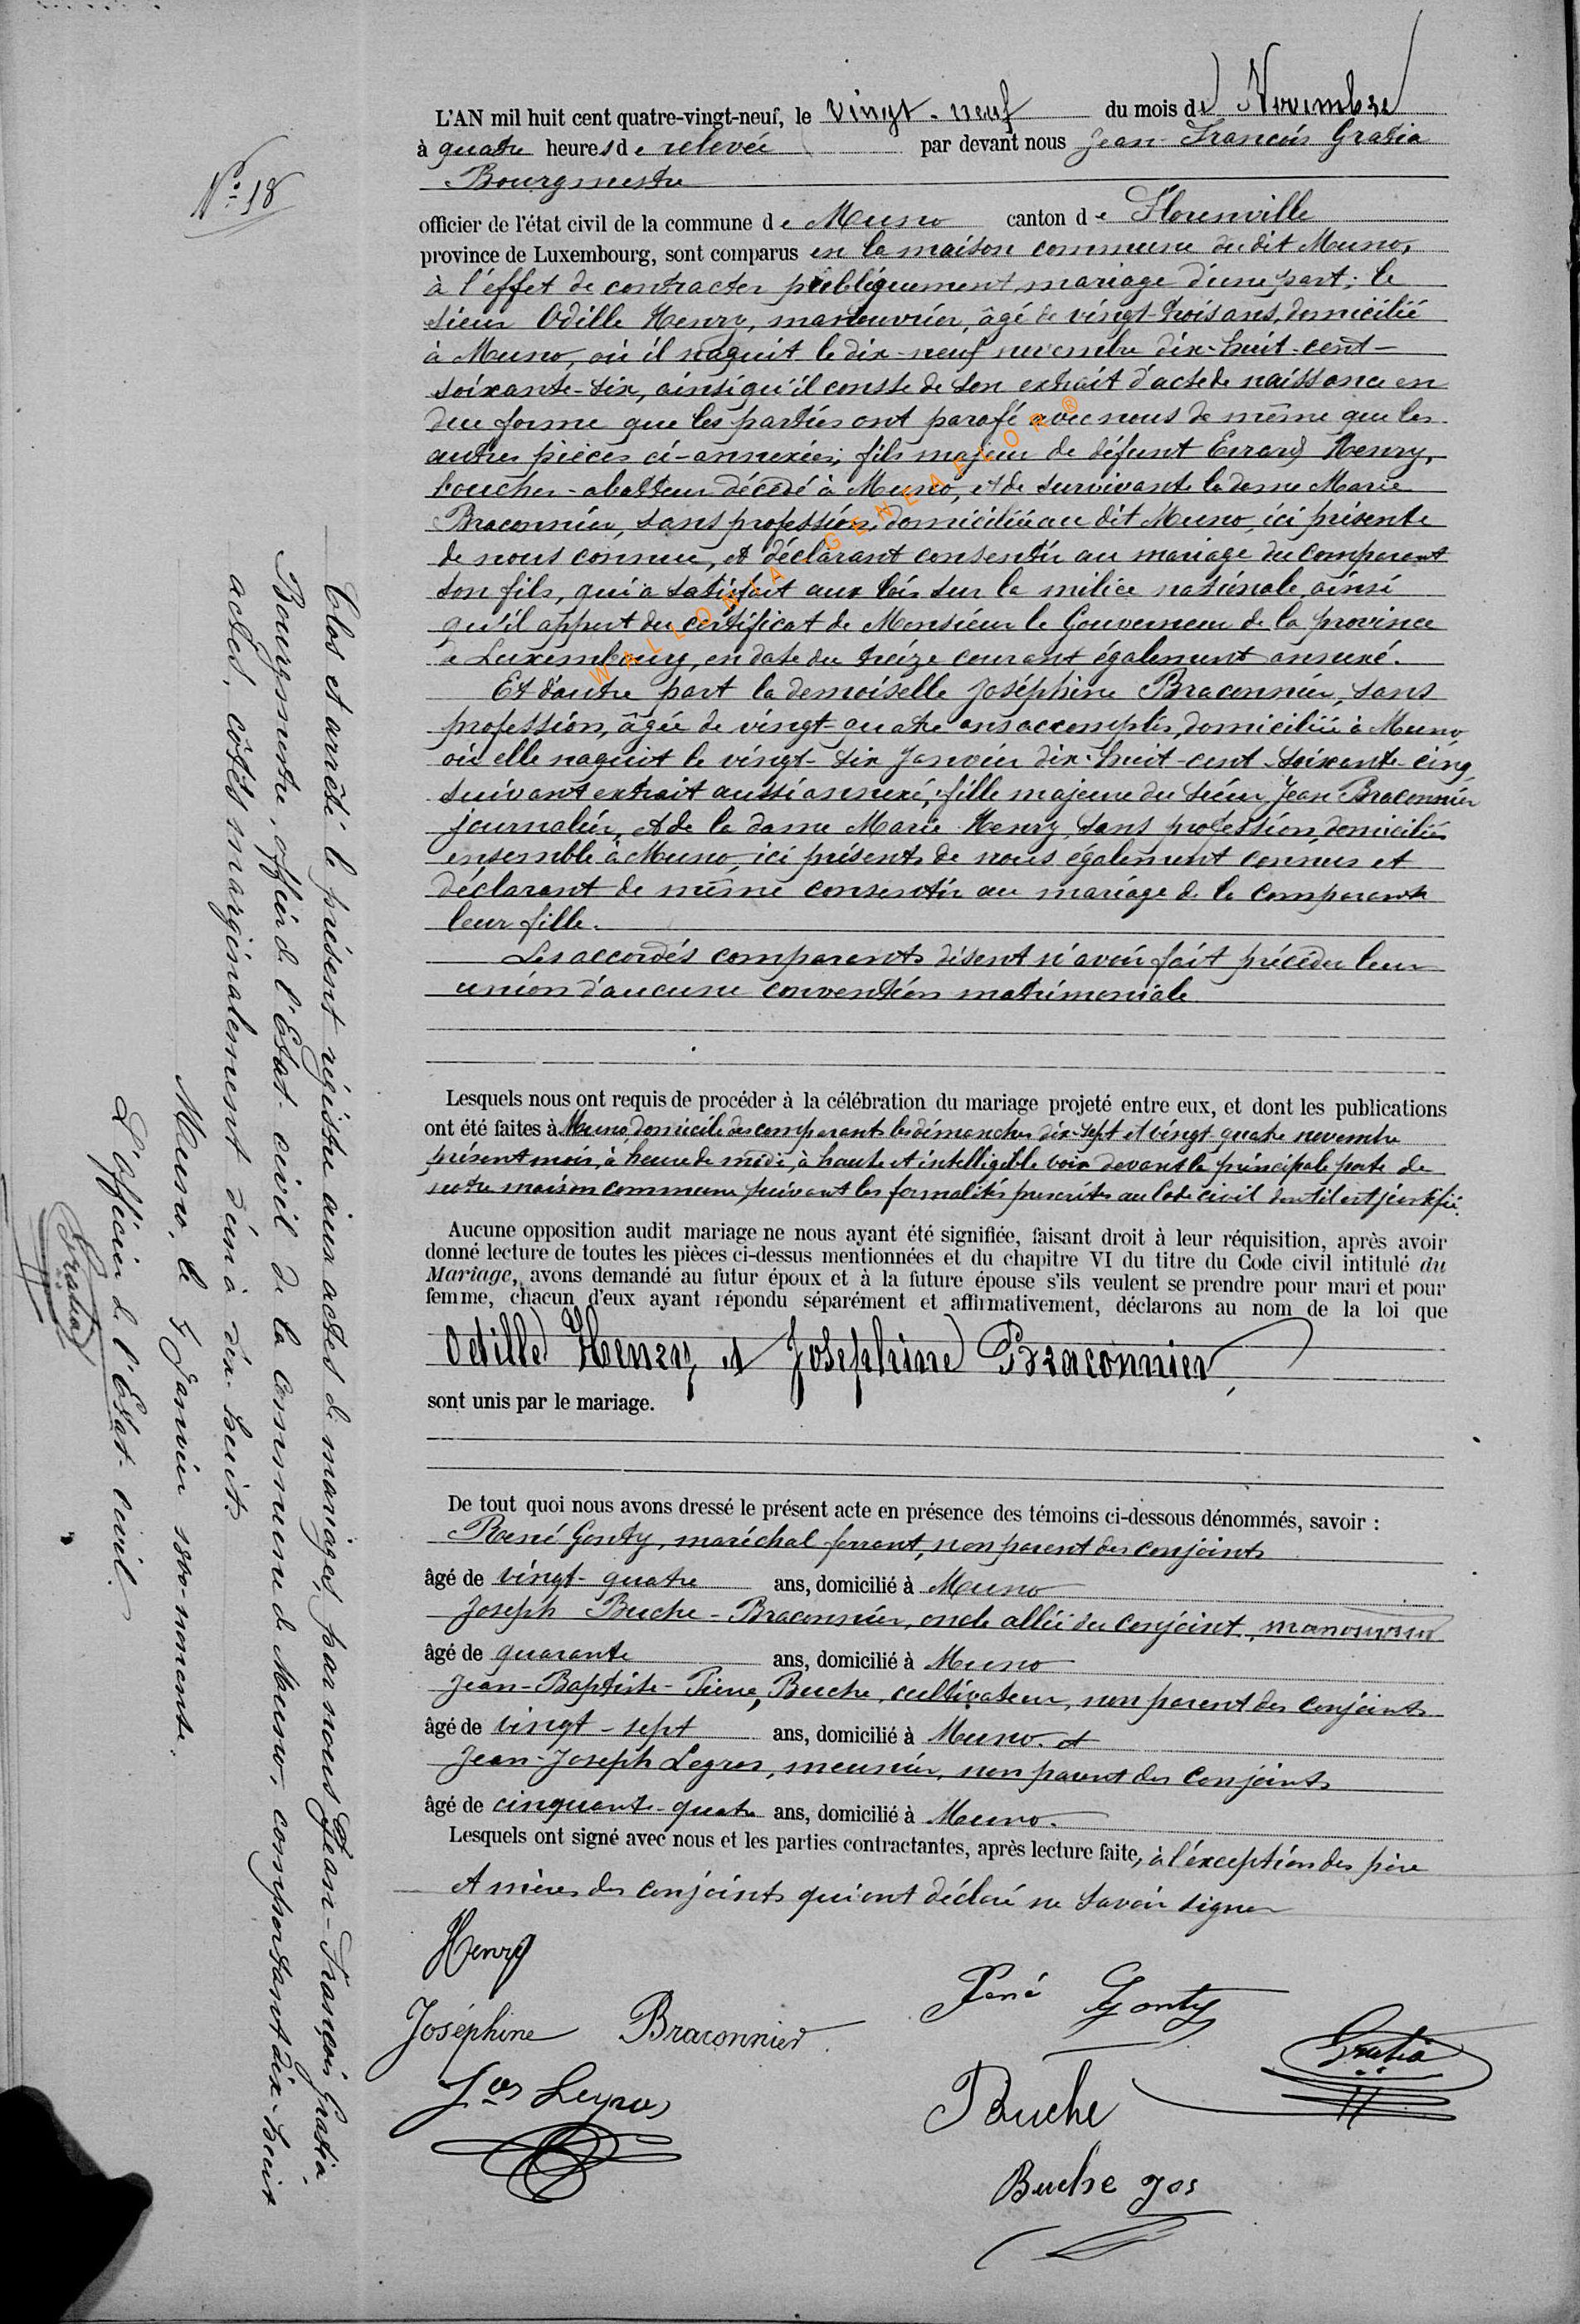 N° 18
L'AN mil huit cent quatre-vingt-neuf, le vingt-neuf du mois de Novembre
à quatre heures de relevée par devant nous Jean François Gratia
Bourgmestre
officier de l'état civil de la commune de Muno canton de Florenville
province de Luxembourg, sont comparus en la maison commune du dit Muno,
à l'effet de contracter publiquement mariage d'une part; le
sieur Odille Henry, manouvrier, âgé de vingt-trois ans, domicilié
à Muno, où il naquit le dix-neuf novembre dix-huit-cent-
soixante-six, ainsi qu'il conste de son extrait d'acte de naissance en
due forme que les parties ont parafé avec nous de même que les
autres pièces ci-annexées; fils majeur de défunt Evrard Henry,
boucher-abatteur décédé à Muno, et de survivante la dame Marie
Braconnier, sans profession, domiciliée au dit Muno, ici présente
de nous connue, et déclarant consentir au mariage du comparant
son fils, qui a satisfait aux lois sur la milice nationale ainsi
qu'il appert du certificat de Monsieur le Gouverneur de la province
de Luxembourg, en date du treize courant également annexé.
Et d'autre part la demoiselle Joséphine Braconnier, sans
profession, âgée de vingt-quatre ans accomplis, domiciliée à Muno
où elle naquit le vingt-six Janvier dix-huit-cent-soixante-cinq
suivant extrait aussi annexé; fille majeure du sieur Jean Braconnier
journalier, et de la dame Marie Henry, sans profession, domiciliés
ensemble à Muno, ici présents de nous également connus et
déclarant de même consentir au mariage de la comparante
leur fille.
Les accordés comparents disent n'avoir fait précéder leur
union d'aucune convention matrimoniale
Lesquels nous ont requis de procéder à la célébration du mariage projeté entre eux, et dont les publications
ont été faites à Muno domicile des comparants les dimanches dix-sept et vingt-quatre novembre
présent mois, à heure de midi, à haute et intelligible voix devant la principale porte de
notre maison commune suivant les formalités prescrites au Code civil dont il est justifié.
Aucune opposition audit mariage ne nous ayant été signifiée, faisant droit à leur réquisition, après avoir
donné lecture de toutes les pièces ci-dessus mentionnées et du chapitre VI du titre du Code civil intitulé du
Mariage, avons demandé au futur époux et à la future épouse s'ils veulent se prendre pour mari et pour
femme, chacun d'eux ayant répondu séparément et affirmativement, déclarons au nom de la loi que
Odille Henry et Joséphine Braconnier,
sont unis par le mariage.
De tout quoi nous avons dressé le présent acte en présence des témoins ci-dessous dénommés, savoir :
René Gonty, maréchal ferrant, non parent des conjoints
âgé de vingt-quatre ans, domicilié à Muno
Joseph Buche-Braconnier, oncle allié du conjoint, manouvrier
âgé de quarante ans, domicilié à Muno
Jean-Baptiste-Pierre, Buche, cultivateur, non parent des conjoints
âgé de vingt-sept ans, domicilié à Muno. et
Jean-Joseph Legros, meunier, non parent des conjoints
âgé de cinquante-quatre ans, domicilié à Muno.
Lesquels ont signé avec nous et les parties contractantes, après lecture faite, à l'exception des père
et mères des conjoints qui ont déclaré ne savoir signer
Henry
René Gonty
Joséphine Braconnier
Gratia
Jos Legros
Buche
Buche Jos
Clos et arrêté le présent régistre aux actes de mariages, par nous Jean-François Gratia,
Bourgmestre, officier de l'Etat-civil de la commune de Muno, comportant dix-huit
actes, côtés marginalement d'un à dix-huit.
Muno, le 1 Janvier 1800-nonante.
L'officier de l'Etat-civil.
Gratia
WALLONIA GENEALOR®